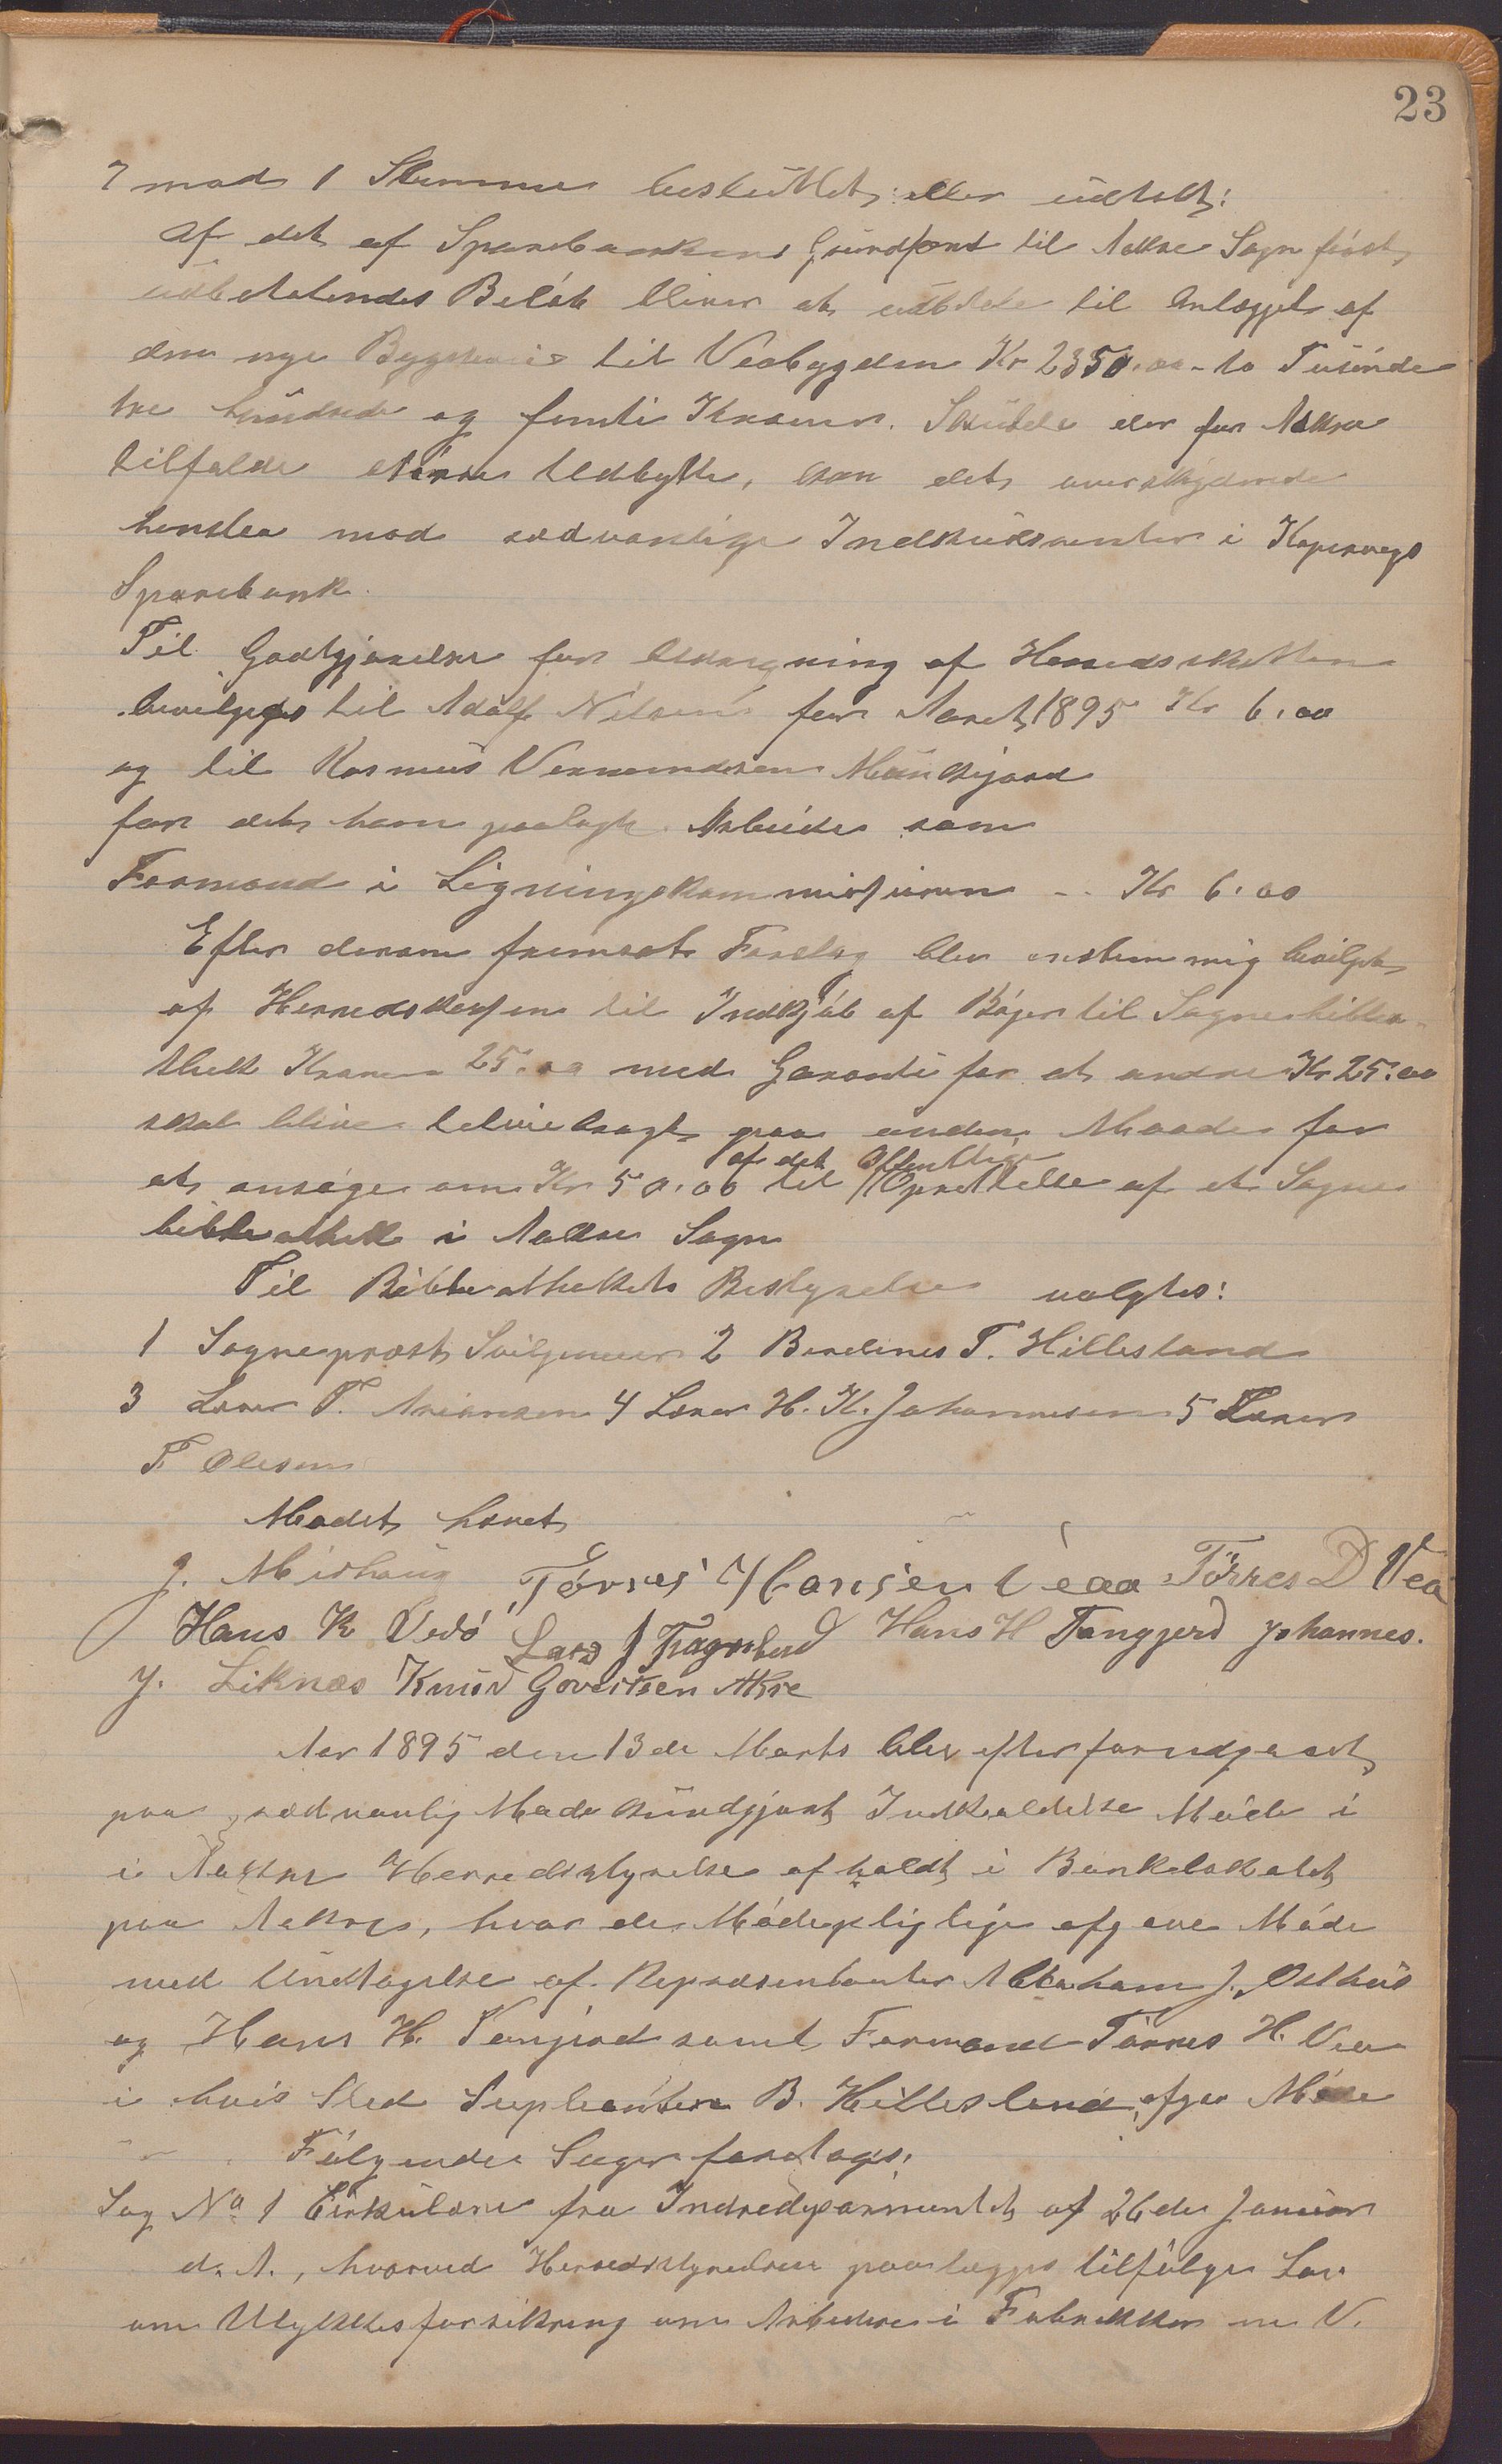 23
7 mod 1 Stemme besluttet eller udtalt:
Af det af Sparebankens Grundfont til Aakre Sogn först
udbetalendes Belöb bliver at udbetale til Anlægget af
den nye Bygdevei til Veabygden Kr 2350.00 - to Tusinde
tre hundrede og femti Kroner. Skulde der for Aakre
tilfalde större Udbytte, kan det overskydende
henstaa mod sædvanlige Indskudsrenter i Kopervigs
Sparebank.
Til Godtgjørelse for Udregning af Herredsskatten
bevilgedes til Adolf Nilsen for Aaret 1895 Kr 6.00
og til Rasmus Vermundsen Munkejord
for det ham paalagte Arbeide som
Formand i Ligningskommissionen - - Kr 6.00
Efter derom fremsat Forslag blev enstemmig bevilget
af Herredskassen til Indkjöb af Böger til Sognebiblio-
thek Kroner 25.00 med Garanti for at andre Kr 25.00
skal blive tilveiebragt paa anden Maade for
af det Offentlige
at ansöge om Kr 50.00 til Oprettelse af et Sogne
bibliothek i Aakre Sogn
Til Bibliothekets Bestyrelse valgtes:
1 Sogneprest 2 Berelines T. Hillesland
3 Lærer T. 4 Lærer H. K. Johannesen 5 Lærer
T. Olesen
Mødet hævet
J. Midhaug Törres Hansen Veaa Törres D Vea
Hans K Vedö Lars J Hans H Tangjerd Johannes.
J. Liknæs Knud Govertsen Akre
Aar 1895 den 13de Marts blev efter forudgaaet,
paa sædvanlig Maade kundgjort Indkaldelse Möde i
i Aakre Herredsstyrelse afholdt i Bankelokalet
paa Aakre, hvor de Mödepligtige afgave Möde
med Undtagelse af Repræsentanter Abraham J. Östhus
og Hans H. Tangjerd samt Formand Törres H. Vea
i hvis Sted Suplianten B. Hillesland afgav Möde
Fölgende Sager foretoges:
Sag No 1 Cirkulære fra Indredepartementet af 26de Januar
d. A., hvorved Herredsstyrelsen paalægges tilfölge Lov
om Ulykkesforsikring om Arbeidere i Fabrikker m V.